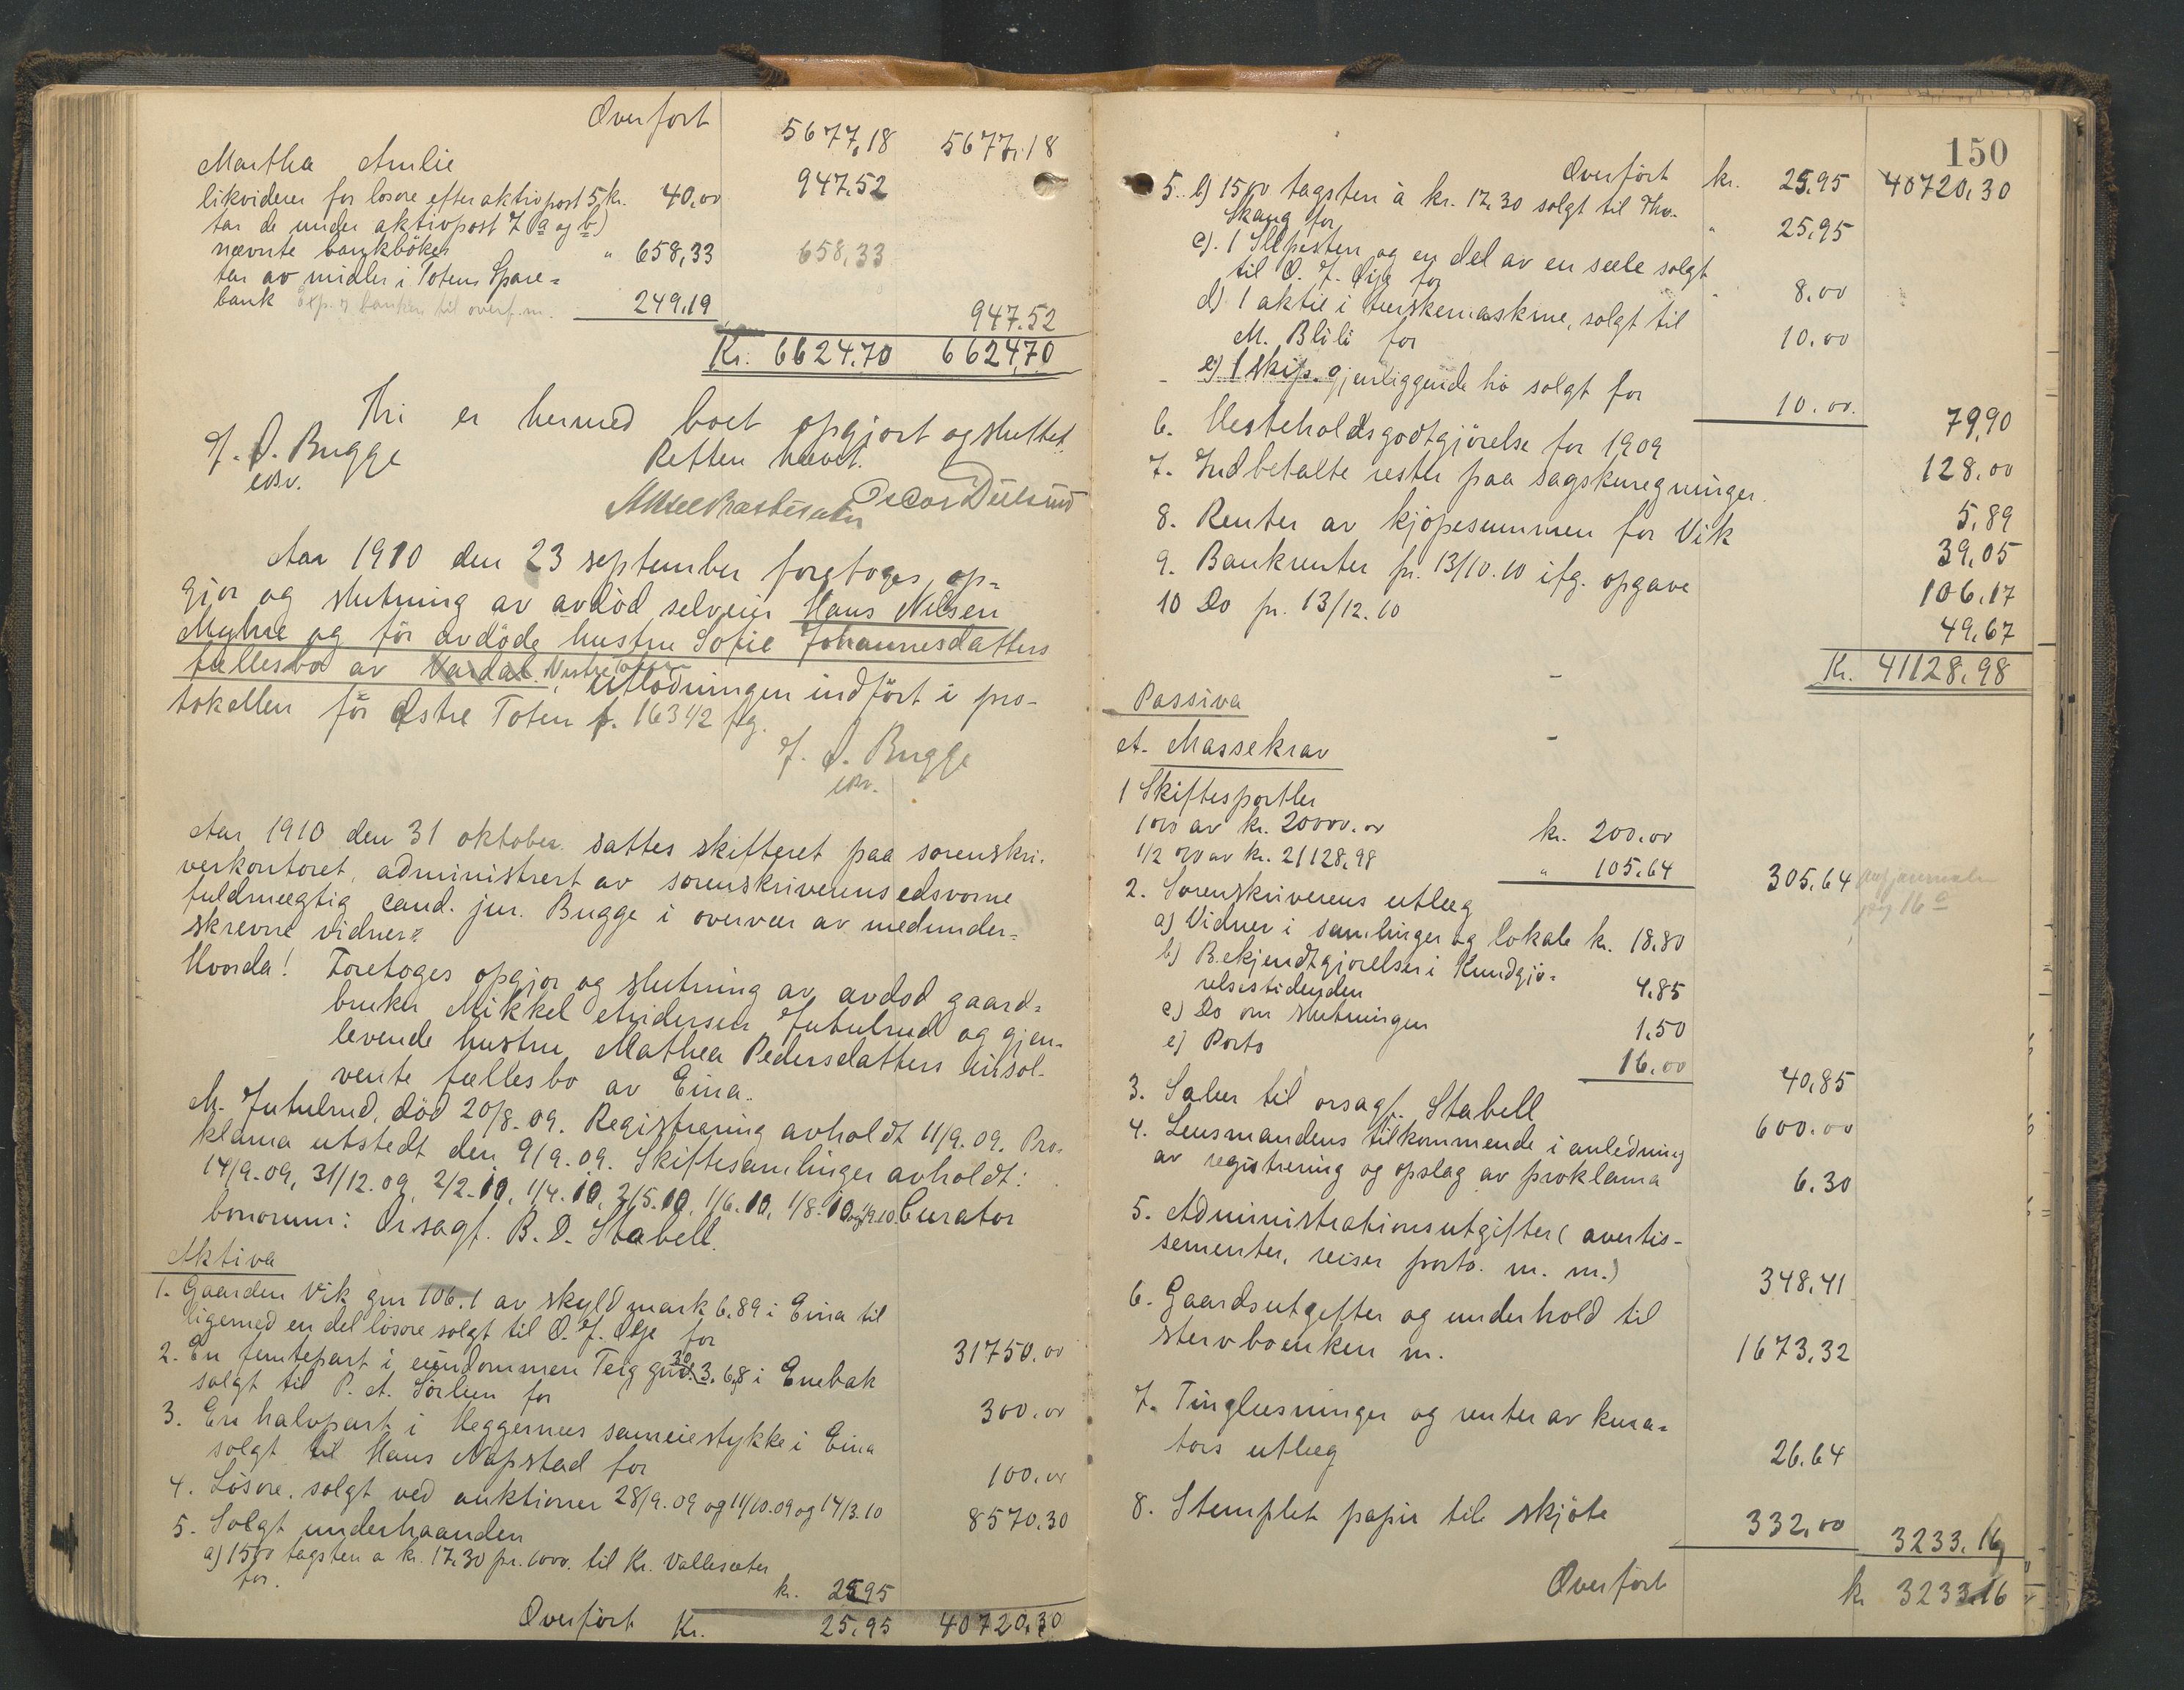 Overført 5677,18 5677,18
Martha Amlie 947.52
likviderer for løsøre efter aktivpost 5, kr. 40,00
tar de under aktivpost 7 (a og b)
nævnte bankbøker " 658,33 658,33
tar av midler i Totens Spare=
bank 249,19 947.52
Kr. 6624.70 6624,70
Thi er hermed boet opgjort og sluttet.
Retten hævet.
J. D. Bugge
edsv.
Aar 1910 den 23 september foretoges op=
gjør og slutning av avdød selveier Hans Nilsen
Myhre og før avdøde hustru Sofie Johannesdatters
fællesbo av Vardal. Vestre Toten, Utlodningen indført i pro-
tokollen for Østre Toten p. 163 1/2 flg.
J. D. Bugge
edsv.
Aar 1910 den 31 oktober sattes skifteret paa sorenskri-
verkontoret, administrert av sorenskriverens edsvorne
fuldmægtig cand. jur. Bugge i overvær av medunder=
skrevne vidner:
Hvorda! Foretoges opgjør og slutning av avdød gaard=
bruker Mikkel Andersen Jutulrud og gjen-
levende hustru Mathea Pedersdatters insol-
vente fællesbo av Eina.
M. Jutulrud, død 20/8.09. Registrering avholdt 11/9.09. Pro-
klama utstedt den 9/9.09. Skiftesamlinger avholdt:
14/9.09, 31/12.09, 2/2.10, 1/4.10, 2/5.10, 1/6.10, 1/8.10 og 1/9.10. Curator
bonorum: Orsagf. B. D. Stabell.
Aktiva
1. Gaarden Vik gnr 106.1 av skyld mark 6.89 i Eina til
ligemed en del løsøre salgt til O. J. Øije for 31750.00
2. En femtepart i eiendommen Teig gnr. 30 3. 6,8 i Enebak
solgt til P. A. Sørlien for 300.00
3. En halvpart i Heggernes sameiestykke i Eina
solgt til Hans Napstad for 100.00
4. Løsøre. solgt ved auktioner 28/9.09 og 11/10.09 og 14/3.10 8570.30
5. Solgt underhaanden
a) 1500 tagsten a kr. 17.30 pr. 1000. til Kr. Vallesæter
for. kr. 25.95
Overført Kr. 25.95 40720.30
150
Overført kr. 25.95 40720.30
5. b) 1500 tagsten à kr. 17.30 solgt til Thv.
Skaug for " 25.95
c). 1 Slipesten og en del av en sæle solgt
til O. J. Øije for " 8.00
d) 1 aktie i tærskemaskine, solgt til
M. Blili for 10.00
e) 1 skip. gjenliggende hø solgt for 10.00. 79,90
6. Hesteholdsgodtgjørelse for 1909 128.00
7. Indbetalte rester paa sagskuregninger. 5,89
8. Renter av kjøpesummen for Vik 39,05
9. Bankrenter pr. 13/10.10 ifg. opgave 106.17
10 Do pr. 13/12.10 49,67
Kr. 41128.98
Passiva
A. Massekrav
1 Skiftesportler
1 0/0 av kr. 20000.00 kr. 200.00
1/2 0/0 av kr. 21128,98 " 105.64 305.64
2. Sorenskriverens utlæg
a) Vidner i samlinger og lokale kr. 18.80
b) Bekjendtgjørelser i Kundgjø=
relsestidenden 4.85
c) Do om slutningen 1.50
e) Porto 16.00 40,85
3. Salær til orsagf. Stabell 600.00
4. Lensmandens tilkommende i anledning
av registrering og opslag av proklama 6.30
5. Administrationsutgifter (avertis-
sementer, reiser porto. m. m.) 348.41
6. Gaardsutgifter og underhold til
stervboenken m. 1673.32
7. Tinglæsninger og renter av kura=
tors utlæg 26.64
8. Stemplet papir til skjøte 332.00 3233.16
Overført kr 3233.16